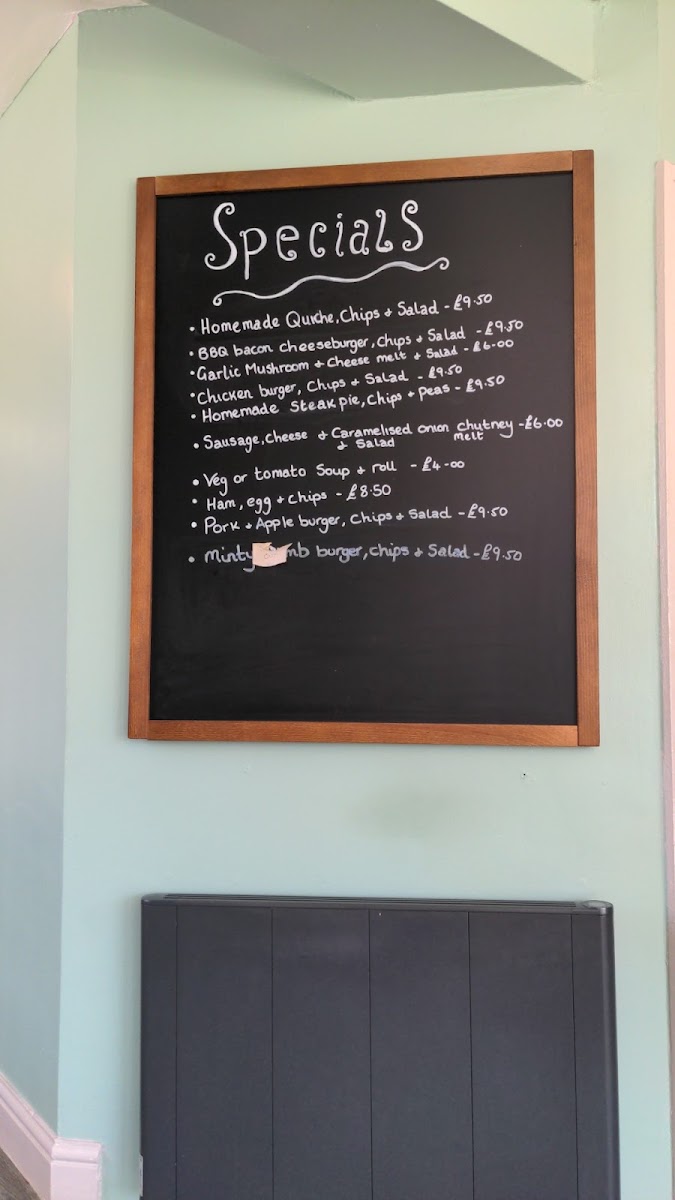 Specials
• Homemade Quiche, Chips + Salad - £9.50
• BBQ bacon cheeseburger, Chips + Salad - £9.50
• Garlic Mushroom + Cheese melt + Salad - £6.00
• Chicken burger, Chips + Salad - £9.50
• Homemade Steak pie, Chips + Peas - £9.50
• Sausage, Cheese + Caramelised onion chutney - £6.00
+ Salad melt
• Veg or tomato Soup + roll - £4-00
• Ham, egg + chips - £8.50
• Pork + Apple burger, Chips + Salad - £9.50
• Minty mb burger, chips + Salad - £9.50